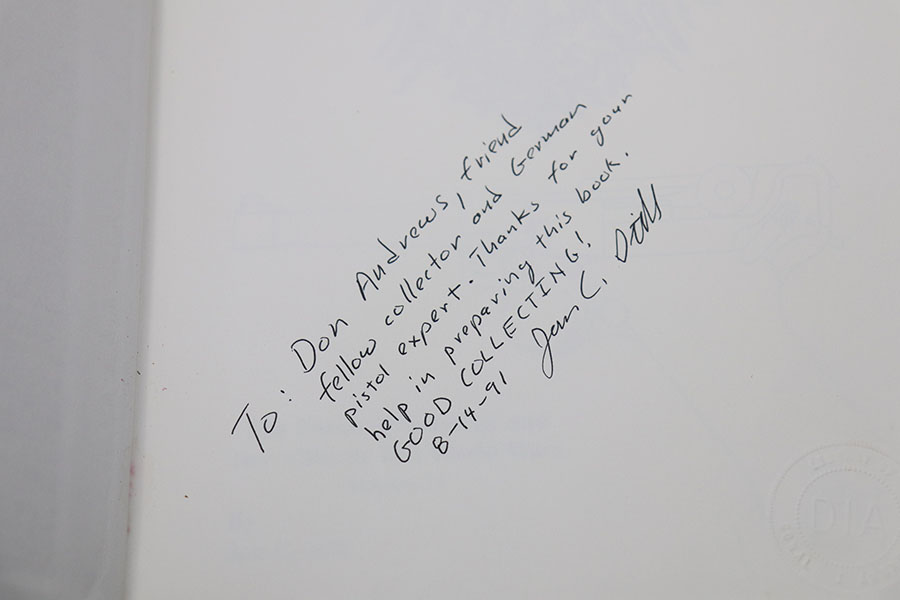 To: Don Andrews, friend
fellow collector and German
pistol expert. Thanks for your
help in preparing this book.
GOOD COLLECTING!
8-14-91 Jan C. Still
DIA